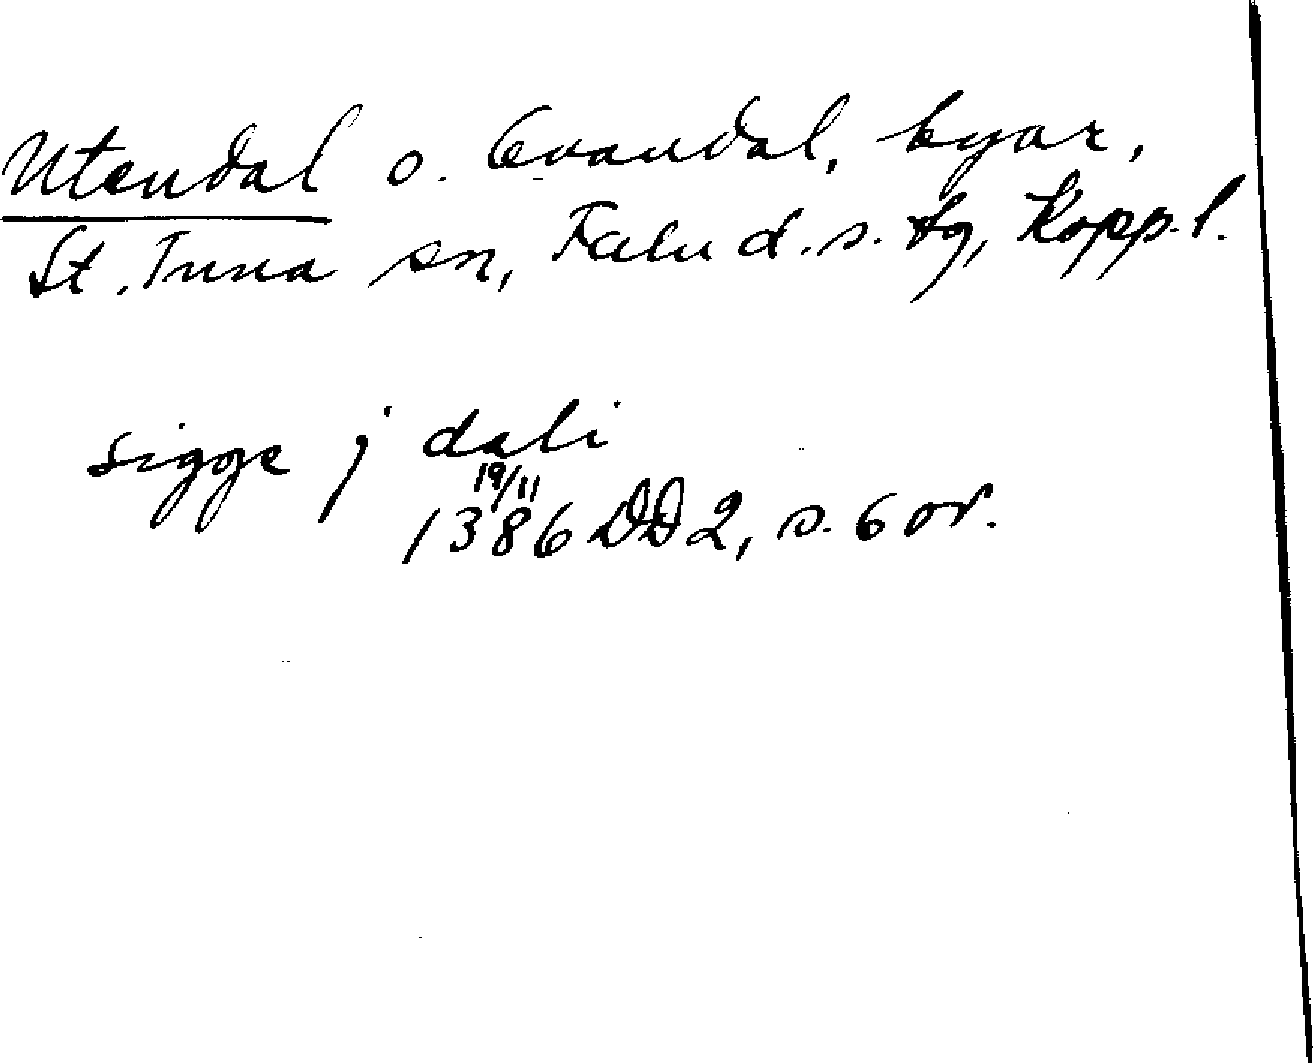 Utendal o. Ovandal, byar,
St. Tuna sn, Falu d. s. tg, Kopp. l.
sigge j dali
19/11
1386 DD 2, s. 6 or.